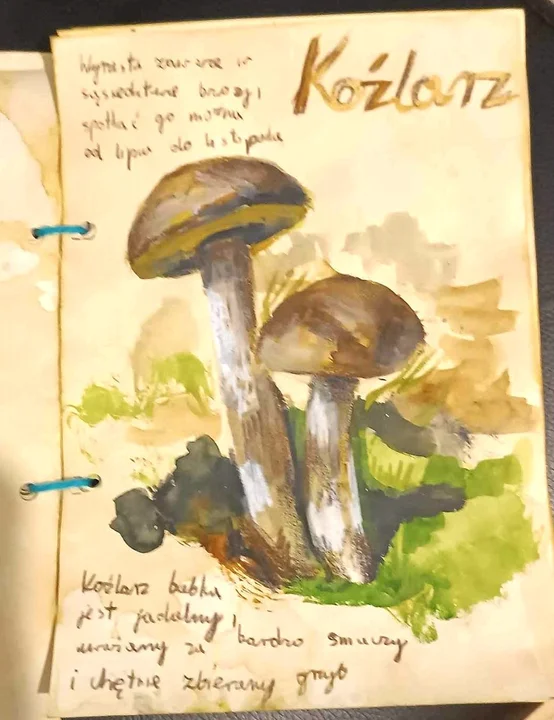 Koźlarz
Wyrasta zawsze w
sąsiedztwie brzozy,
spotkać go można
od lipca do listopada
Koźlarz babka
jest jadalny,
uważany za bardzo smaczny
i chętnie zbierany grzyb